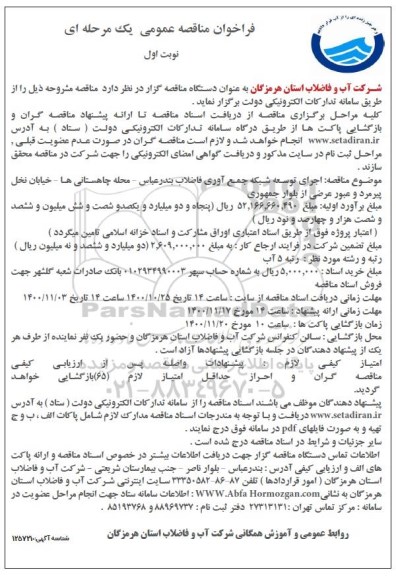 فراخوان مناقصه عمومی یک مرحله ای
نوبت اول
شرکت آب و فاضلاب استان هرمزگان به عنوان دستگاه مناقصه گزار در نظر دارد مناقصه مشروحه ذیل را از
طریق سامانه تدارکات الکترونیکی دولت برگزار نماید .
کلیه مراحل برگزاری مناقصه از دریافت اسناد مناقصه تا ارائه پیشنهاد مناقصه گران و
بازگشایی پاکت ها از طریق درگاه سامانه تدارکات الکترونیکی دولت ( ستاد ) به آدرس
www.setadiran.ir انجام خواهد شد و لازم است مناقصه گران در صورت عدم عضویت قبلی ,
مراحل ثبت نام در سایت مذکور و دریافت گواهی امضای الکترونیکی را جهت شرکت در مناقصه محقق
سازند .
موضوع مناقصه: اجرای توسعه شبکه جمع آوری فاضلاب بندرعباس – محله چاهستانی ها – خیابان نخل
پیرمرد و عبور عرضی از بلوار جمهوری
مبلغ برآورد اولیه: مبلغ ۵۲,۱۶۶,۶۶۰,۴۹۰ ریال (پنجاه و دو میلیارد و یکصدو شصت و شش میلیون و ششصد
و شصت هزار و چهارصد و نود ریال )
( اعتبار پروژه فوق از طریق اسناد اعتباری اوراق مشارکت و اسناد خزانه اسلامی تامین میگردد )
مبلغ تضمین شرکت در فرایند ارجاع کار : به مبلغ ۲,۶۰۹,۰۰۰,۰۰۰ (دو میلیارد و ششصد و نه میلیون ریال )
رتبه و رشته مورد نظر : رتبه ۵ آب
مبلغ خرید اسناد : ۵,۰۰۰,۰۰۰ ریال به شماره حساب سپهر ۰۱۰۲۹۳۴۹۹۰۰۰۳ بانک صادرات شعبه گلشهر جهت
فروش اسناد مناقصه
مهلت زمانی دریافت اسناد مناقصه از سایت : ساعت ۱۴ تاریخ ۱۴۰۰/۱۰/۲۵ تا ساعت ۱۴ تاریخ ۱۴۰۰/۱۱/۰۳
مهلت زمانی ارائه پیشنهاد : ساعت ۱۴ مورخ ۱۴۰۰/۱۱/۱۷
زمان بازگشایی پاکت ها : ساعت ۱۰ مورخ ۱۴۰۰/۱۱/۲۰
محل بازگشایی : سالن کنفرانس شرکت آب و فاضلاب استان هرمزگان و حضور یک نفر نماینده از طرف هر
یک از پیشنهاد دهندگان در جلسه بازگشایی پیشنهادها آزاد است .
امتیاز کیفی لازم : پیشنهادات واصله پس از ارزیابی کیفی
مناقصه گران و احراز حداقل امتیاز لازم (۶۵)بازگشایی خواهد
گردید.
پیشنهاد دهندگان موظف می باشند اسناد مناقصه را از سامانه تدارکات الکترونیکی دولت ( ستاد ) به آدرس
www.setadiran.ir دریافت و با توجه به مندرجات اسناد مناقصه مدارک لازم شامل پاکات الف ، ب و ج
تهیه و به صورت فایلهای pdf در سامانه فوق درج نمایند .
سایر جزئیات و شرایط در اسناد مناقصه درج شده است .
اطلاعات تماس دستگاه مناقصه گزار جهت دریافت اطلاعات بیشتر در خصوص اسناد مناقصه و ارائه پاکت
های الف و ارزیابی کیفی آدرس : بندرعباس – بلوار ناصر – جنب بیمارستان شریعتی – شرکت آب و فاضلاب
استان هرمزگان ( امور قراردادها ) تلفن ۸۷-۸۶-۳۳۳۵۰۵۸۲ سایت اینترنتی شرکت آب و فاضلاب استان
هرمزگان به نشانی WWW.Abfa Hormozgan.com : اطلاعات سامانه ستاد جهت انجام مراحل عضویت در
سامانه : مرکز تماس تهران : ۲۷۳۱۳۱۳۱ دفتر ثبت نام : ۸۸۹۶۹۷۳۷ و ۸۵۱۹۳۷۶۸ .
روابط عمومی و آموزش همگانی شرکت آب و فاضلاب استان هرمزگان
شناسه آگهی:۱۲۵۷۲۱۰
ParsNamadData
۰۲۱-۸۸۳۴۹۶۷۰-۵